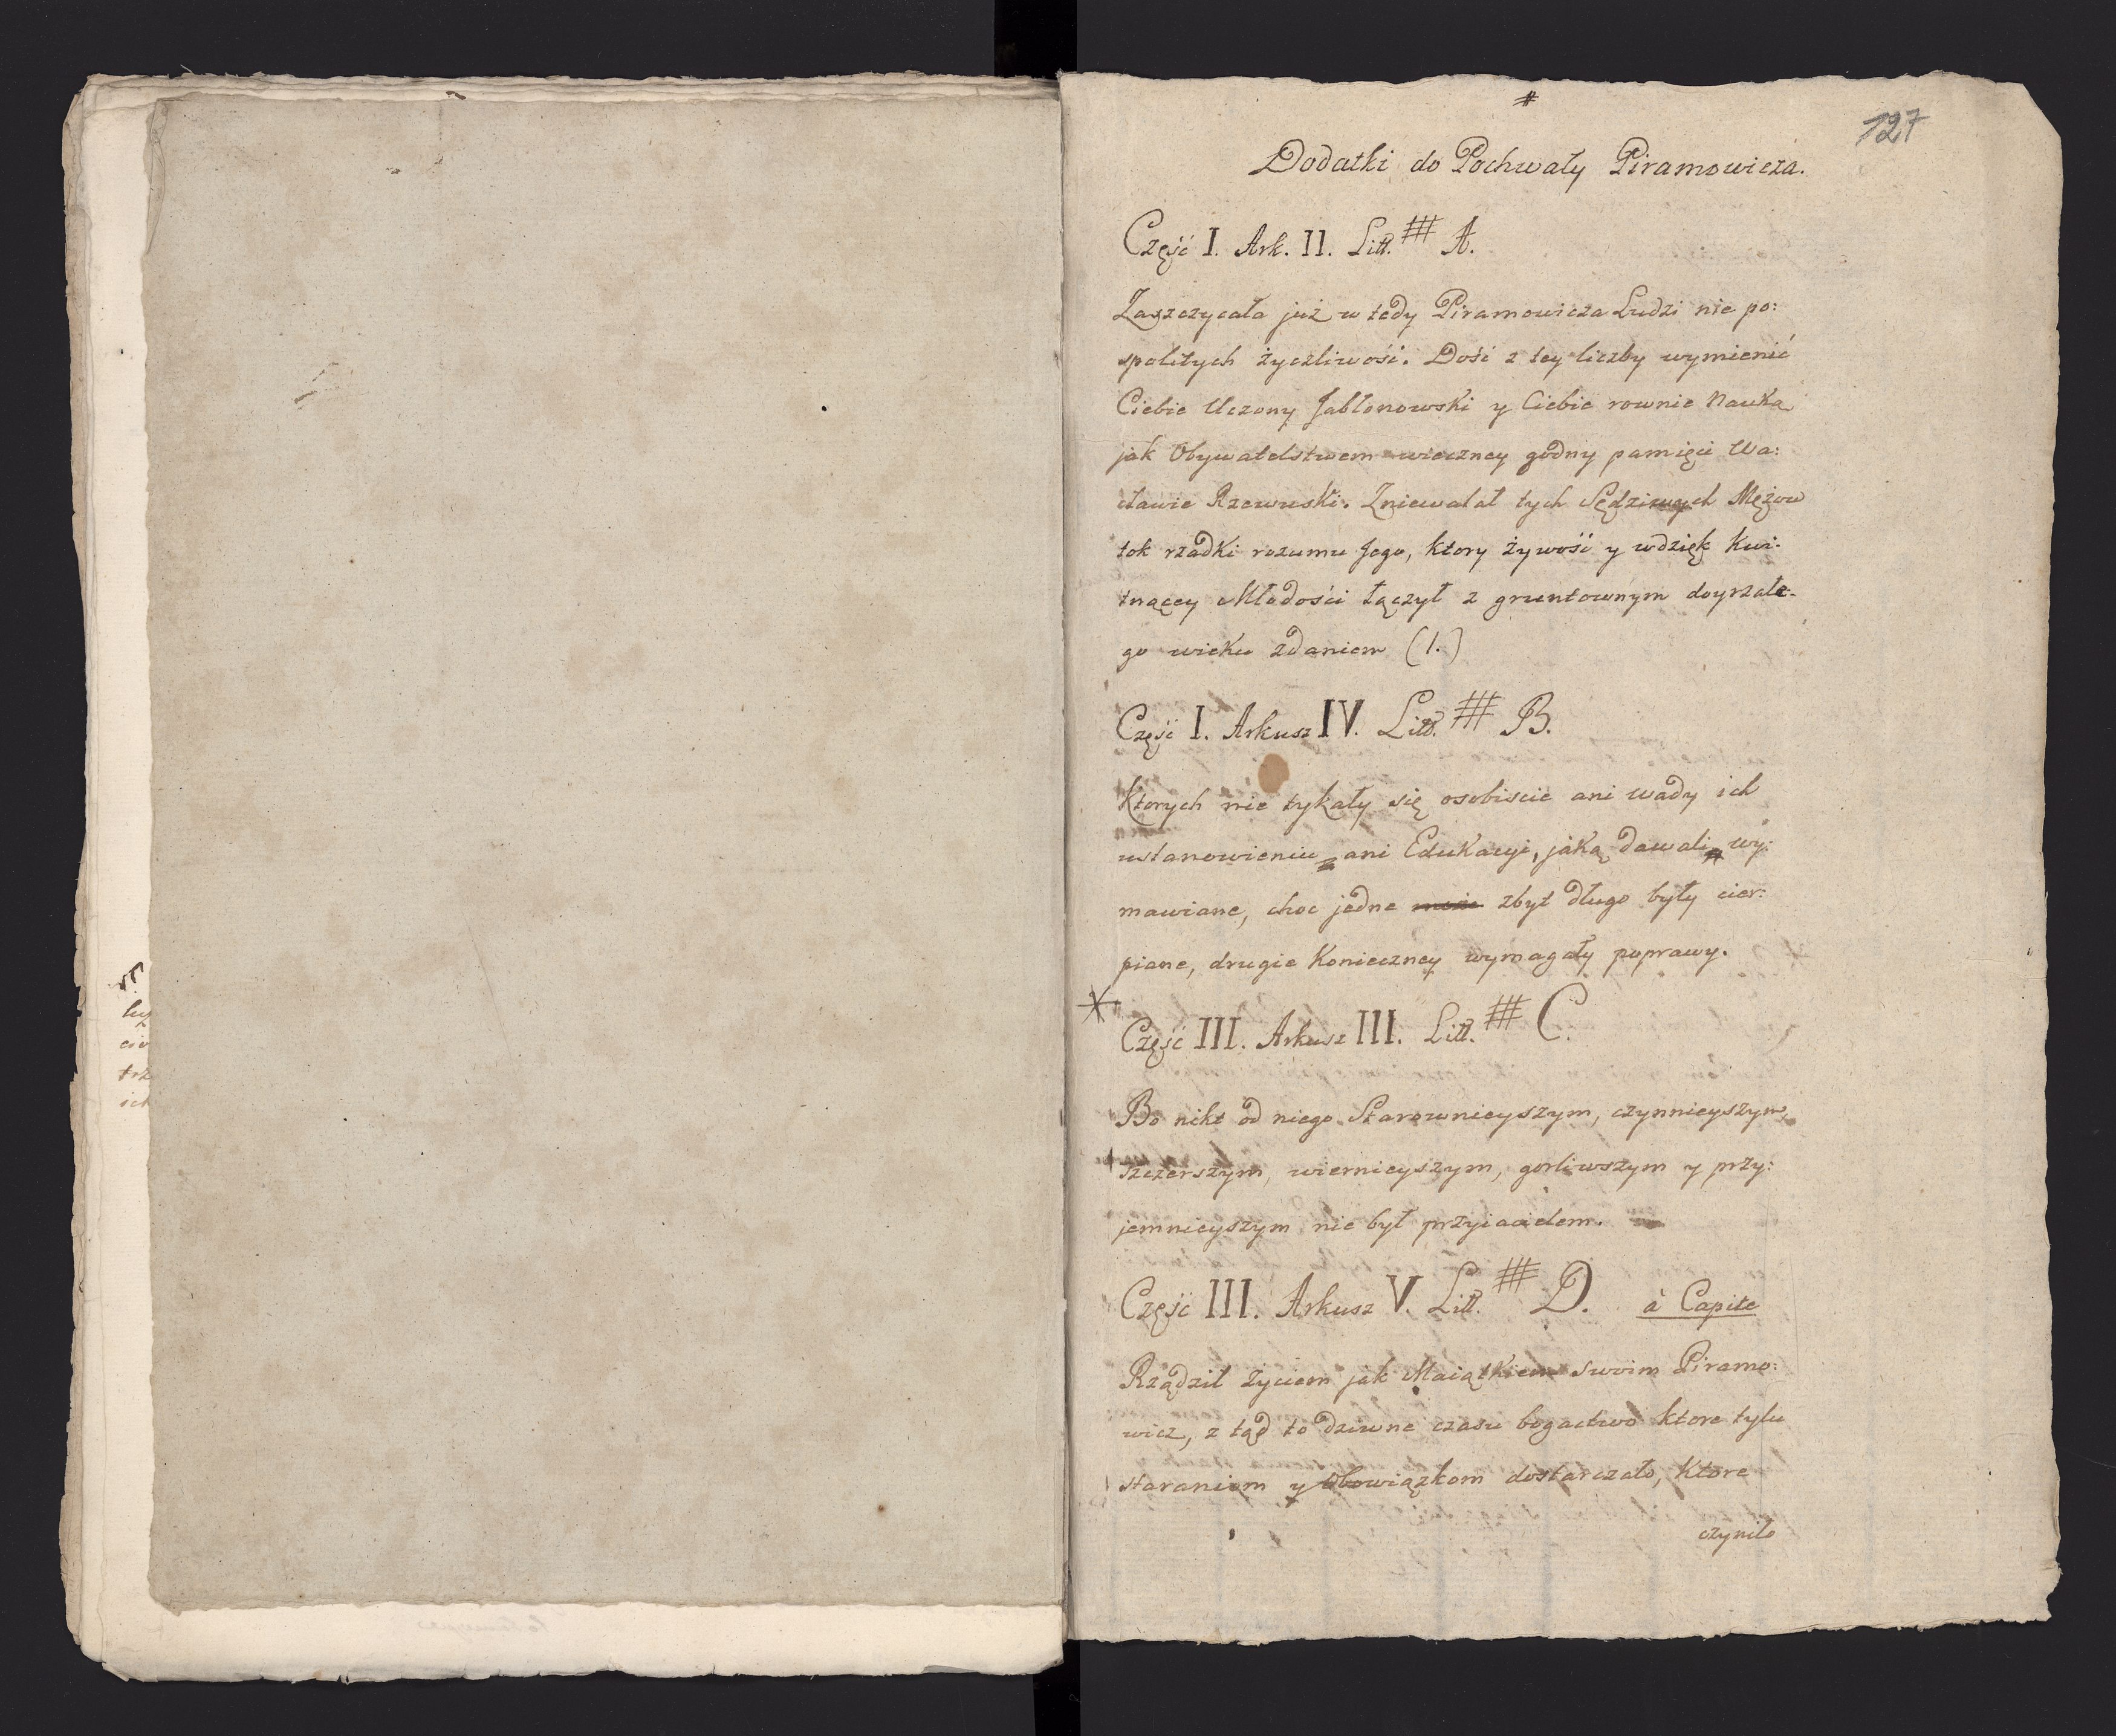 #
127
Dodatki do Pochwały Piramowicza.
Część I. Ark. II. Litt. # A.
Zaszczycała już w tedy Piramowicza Ludzi nie po:
spolitych życzliwość. Dość z tey liczby wymienić
Ciebie Uczony Jabłonowski y Ciebie rownie Nauką
jak Obywatelstwem wieczney godny pamięci Wa:
cławie Rzewuski. Zniewalał tych Sędziwych Mężow
tok rzadki rozumu Jego, ktory żywość y wdzięk Kwi-
tnącey Młodości łączył z gruntownym doyrzałe-
go wieku zdaniem (1.)
Część I. Arkusz IV. Litt. # B.
Ktorych nie tykały się osobiscie ani wady ich
ustanowieniu ani Edukacyi, jaką dawali wy:
mawiane, choc jedne zbyt długo były cier:
piane, drugie Konieczney wymagały poprawy.
Część III. Arkusz III. Litt. # C.
Bo nikt od niego Starownieyszym, czynnieyszym,
szczerszym, wiernieyszym, gorliwszym y przy:
jemnieyszym nie był przyiacielem.
Część III. Arkusz V. Litt. # D. à Capite
Rządził życiem jak Maiątkiem swoim Piramo:
wicz, z tąd to dziwne czasu bogactwo ktore tylu
staraniom y Obowiązkom dostarczało, Ktore
czyniło